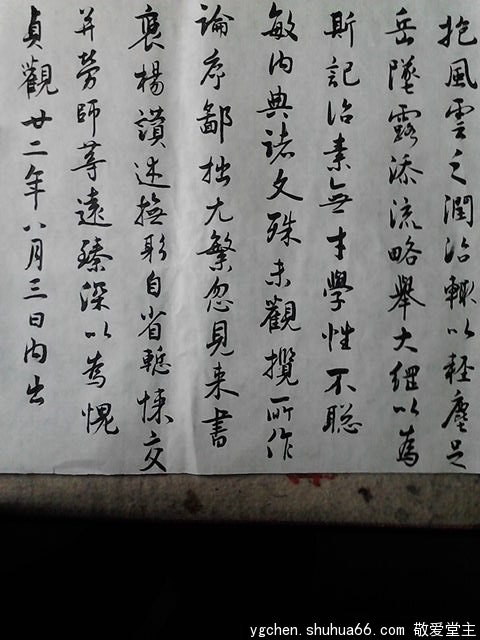 抱風雲之潤治輙以輕塵足
岳墜露添流略舉大綱以為
斯記治素無才學性不聡
敏內典諸文殊未觀攬所作
論序鄙拙尤繁忽見来書
褒楊讃述撫躬自省慙悚交
并勞師等遠臻深以為愧
貞觀廿二年八月三日內出
ygchen.shuhua66.com 敬爱堂主